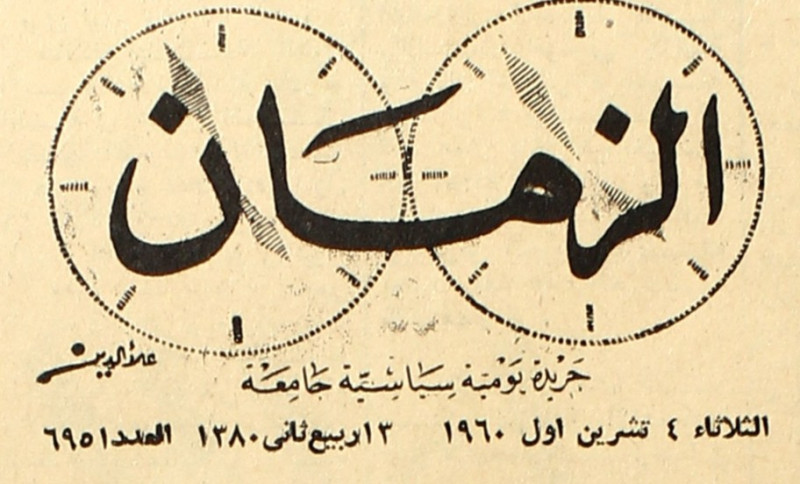 الزمان
جريدة يومية سياسية جامعة
علاءالدين
الثلاثاء ٤ تشرين اول ١٩٦٠ ١٣ ربيع ثانى ١٣٨٠ العدد ٦٩٥١